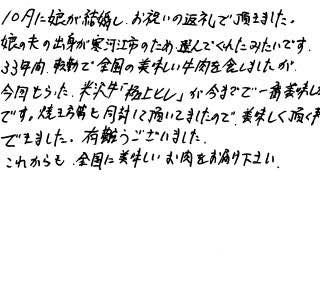 10月に娘が結婚し、お祝いの返礼で頂きました。
娘の夫の出身が寒河江市のため選んでくれたみたいです。
33年間、転勤で全国の美味しい牛肉を食しましたが、
今回もらった、米沢牛「極上ヒレ」が今までで一番美味し
です。焼き方等も同封して頂いてましたので、美味しく頂く事
できました。有難うございました。
これからも、全国に美味しいお肉をお届け下さい。